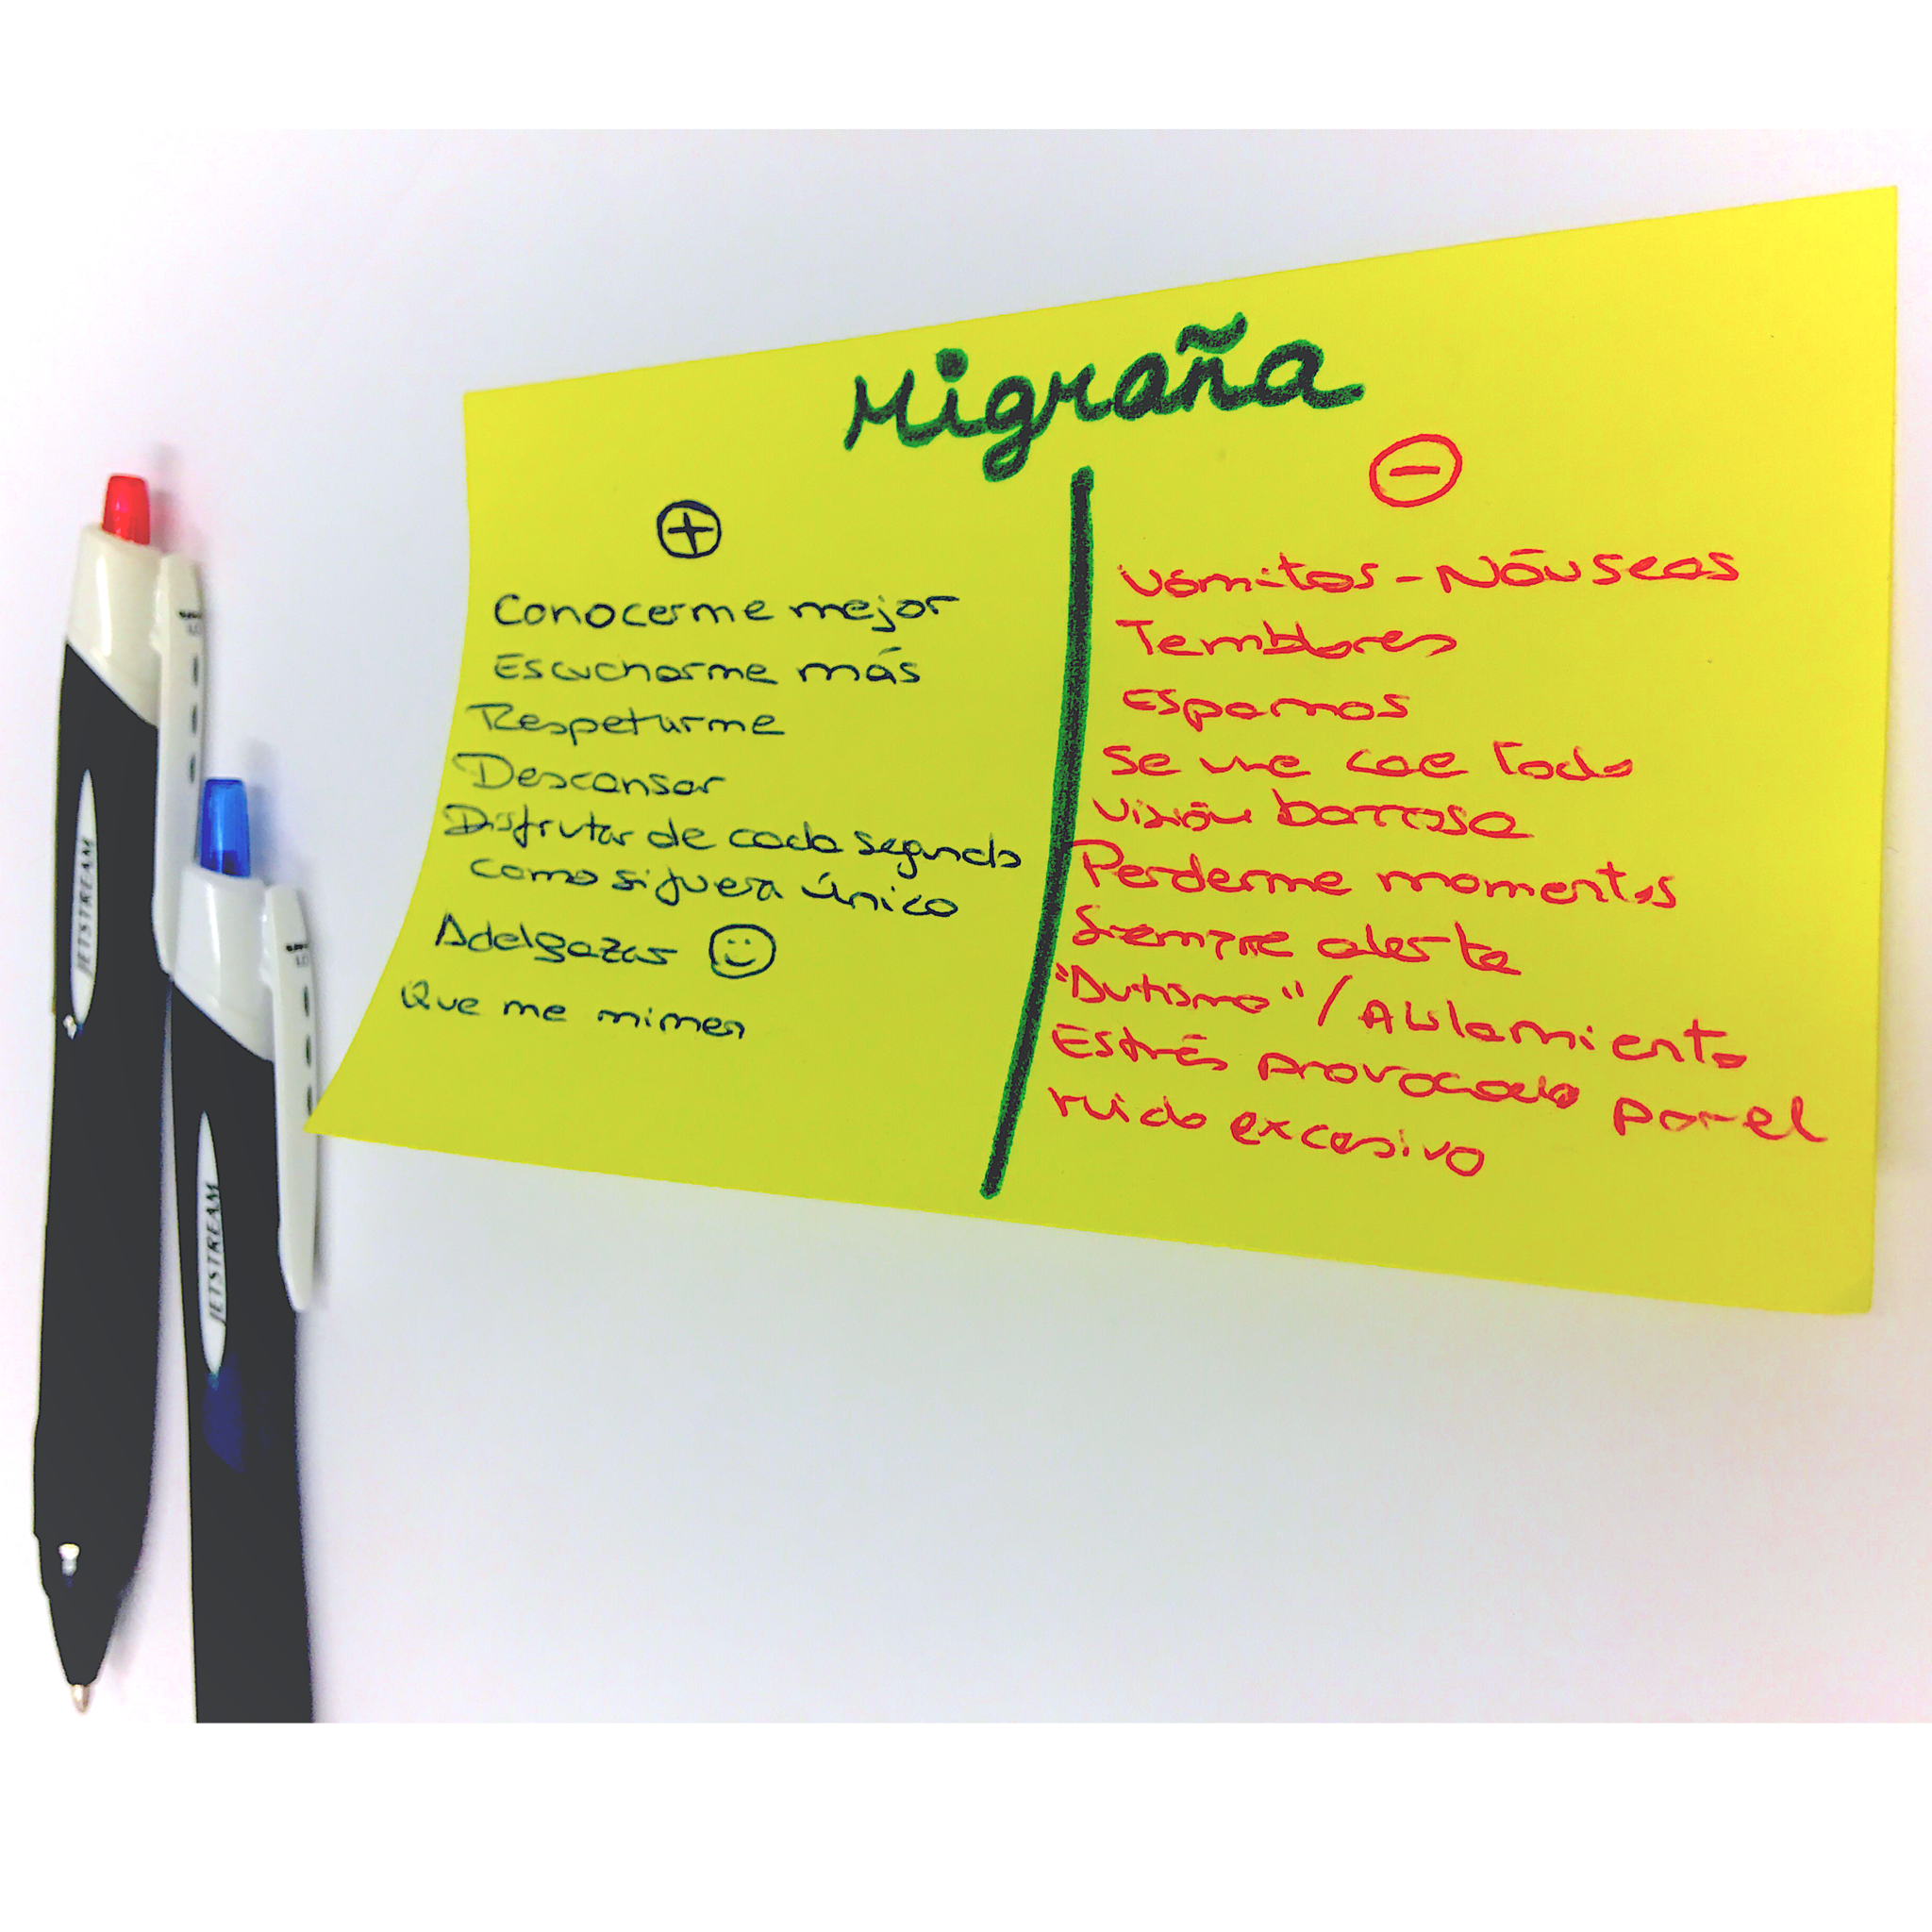 Migraña
+
Conocerme mejor
Escucharme más
Respetarme
Descansar
Disfrutar de cada segundo
como si fuera único
Adelgazar
Que me mimen
−
Vómitos - Náuseas
Temblores
Espamos
Se me cae todo
Visión borrosa
Perderme momentos
Siempre alerta
"Autismo" / Aislamiento
Estrés provocado por el
ruido excesivo
JETSTREAM
JETSTREAM